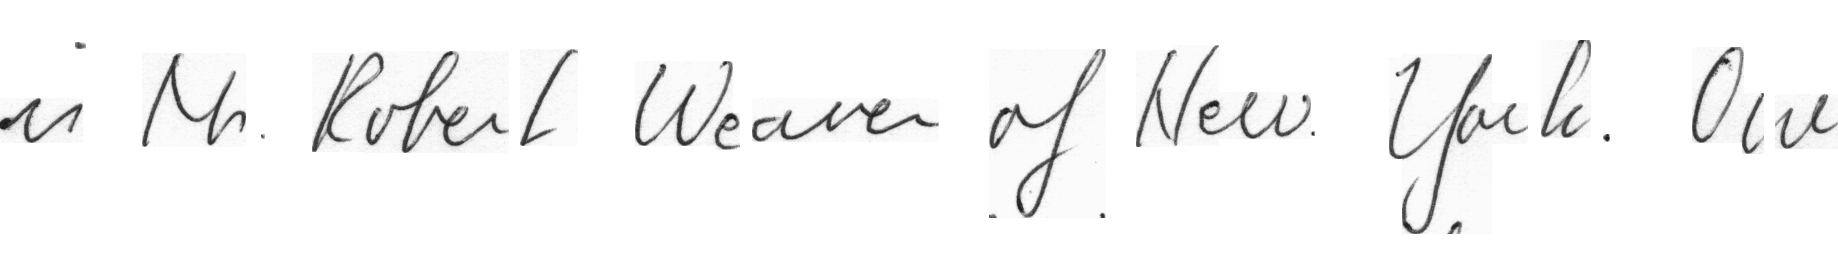 is Mr. Robert Weaver of New York. Our